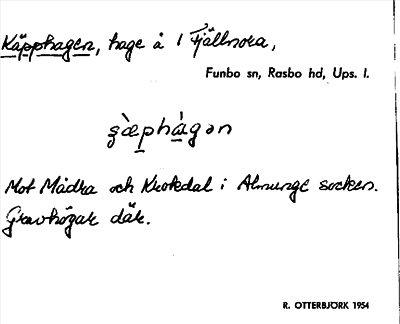 Käpphagen, hage å 1 Fjällnora,
Funbo sn, Rasbo hd, Ups. l.
ʂæ̀phàgən
Mot Mådra och Krokdal i Almunge socken.
Gravhögar där.
R. OTTERBJÖRK 1954